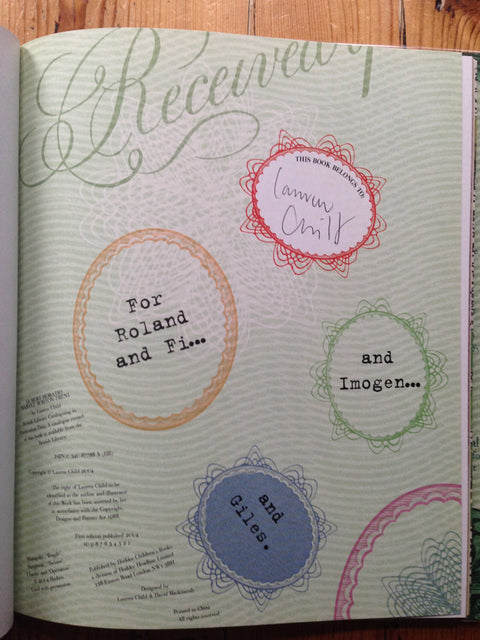 Received
THIS BOOK BELONGS TO:
Lauren
Child
For
Roland
and Fi...
and
Imogen...
and
Giles.
by Lauren Child
British Library Cataloguing in
Publication Data. A catalogue record
of this book is available from the
British Library.
Copyright © Lauren Child 2004
The right of Lauren Child to be
identified as the author and illustrator
of this Work has been asserted by her
in accordance with the Copyright,
Designs and Patents Act 1988
First edition published 2004
10 9 8 7 6 5 4 3 2 1
Published by Hodder Children's Books
a division of Hodder Headline Limited
338 Euston Road London NW1 3BH
Designed by
Lauren Child & David Mackintosh
Printed in China
All rights reserved